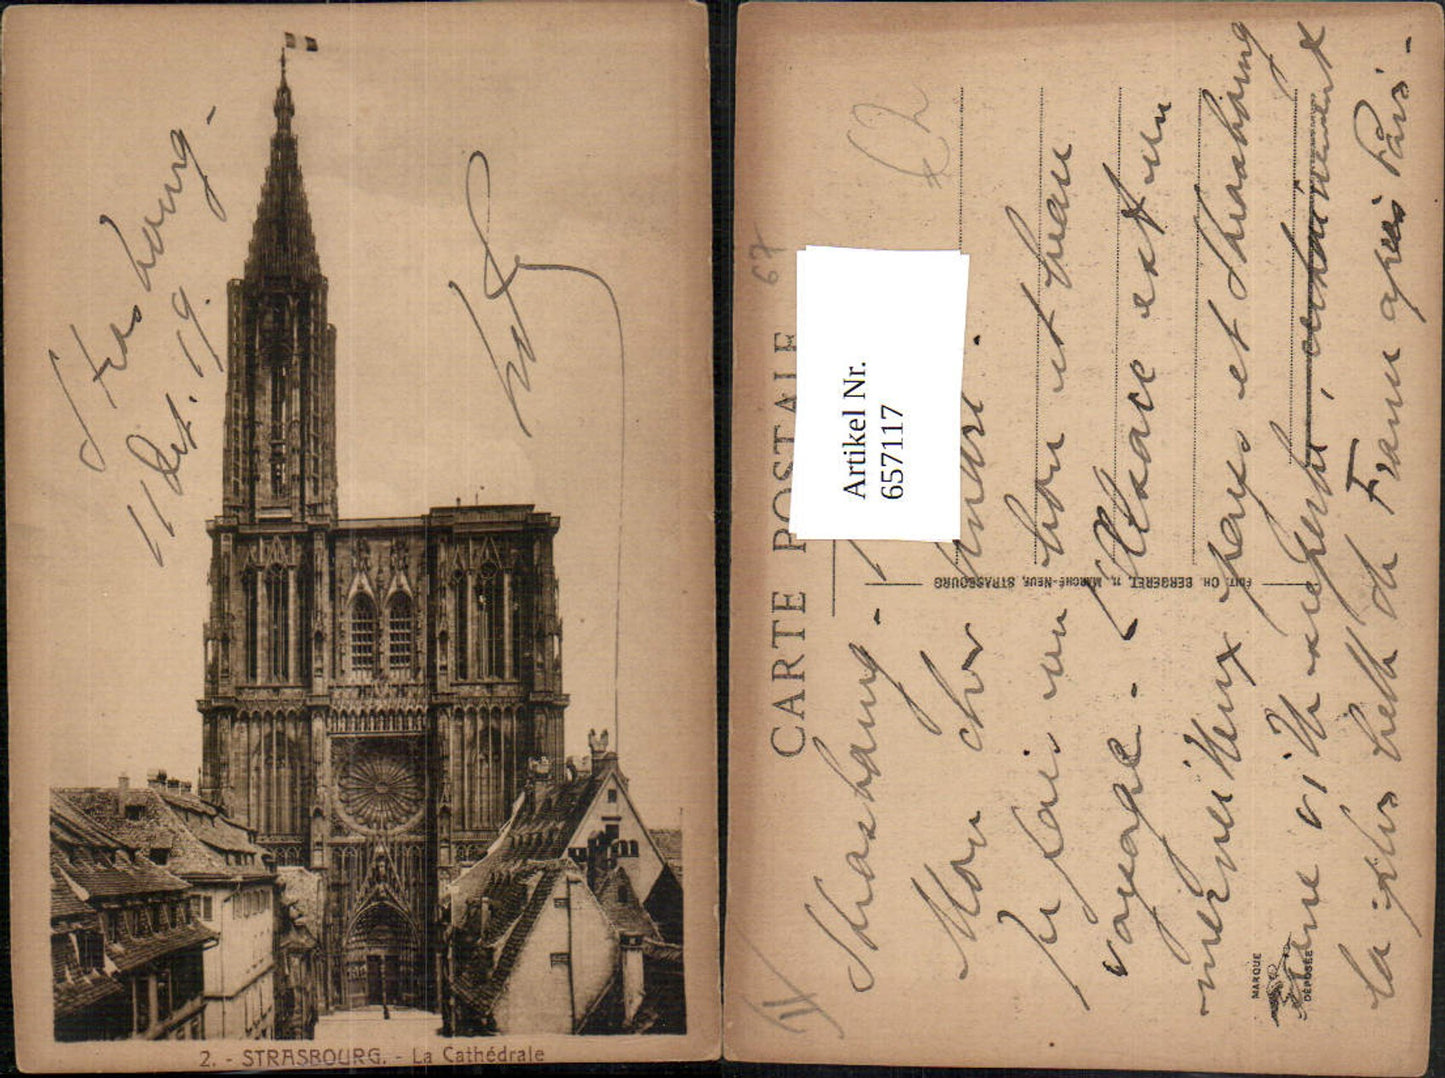 Strasbourg -
11 Oct. 19.
2. - STRASBOURG. - La Cathédrale
CARTE POSTALE
67
Artikel Nr.
657117
ÉDIT. CH. BERGERET, 11, MARCHÉ-NEUF, STRASBOURG
MARQUE
DÉPOSÉE
IV
Strasbourg -
Mon cher André.
Je fais un bon et beau
voyage. - L'Alsace est un
merveilleux pays et Strasbourg
une ville superbe, certainement
la plus belle de France après Paris -